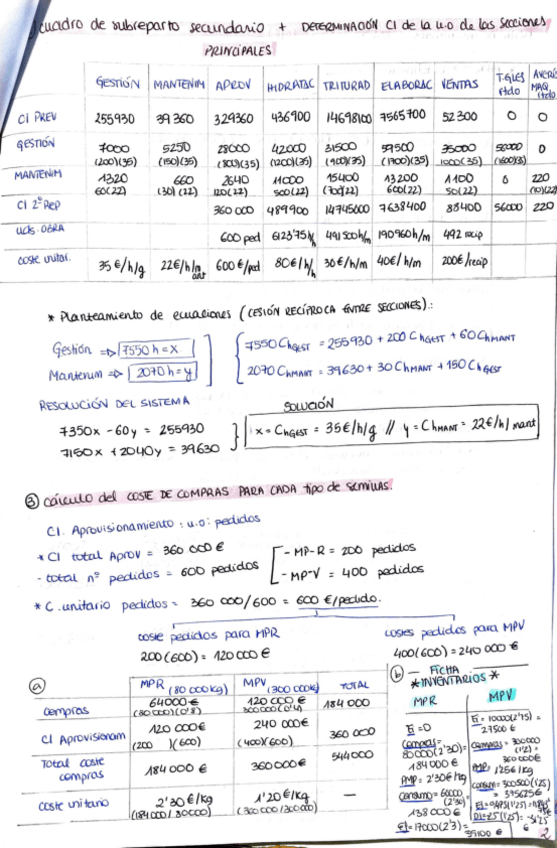 cuadro de subreparto secundario + DETERMINACIÓN CI de la u.o de las secciones
PRINCIPALES
GESTIÓN MANTENIM APROV HIDRATAC TRITURAD ELABORAC VENTAS T.GLES AVERÍA
MAQ
CI PREV 255930 39360 329360 436900 14698100 7565700 52300 0 0
GESTIÓN 7000 5250 28000 42000 31500 59500 35000 56000 0
(200)(35) (150)(35) (800)(35) (1200)(35) (900)(35) (1700)(35) 1000(35) (1600)(35)
MANTENIM 1320 660 2640 11000 15400 13200 1100 0 220
60(22) (30)(22) 120(22) 500(22) (700)(22) 600(22) 50(22) (10)(22)
CI 2º Rep 360 000 489900 14745000 7638400 88400 56000 220
uds. OBRA 600 ped 6123'75h/h 491500h/m 190960h/m 492 recip
coste unitar. 35€/h/g 22€/h/mant 600€/ped 80€/h/h 30€/h/m 40€/h/m 200€/recip
* Planteamiento de ecuaciones (CESIÓN RECÍPROCA ENTRE SECCIONES).:
Gestión => 7550 h = x
7550 ChGEST = 255930 + 200 ChGEST + 60 ChMANT
Mantenim => 2070 h = y
2070 ChMANT = 39630 + 30 ChMANT + 150 ChGEST
RESOLUCIÓN DEL SISTEMA
SOLUCIÓN
7350x - 60y = 255930
x = ChGEST = 35€/h/g // y = ChMANT = 22€/h/mant
7150x + 2040y = 39630
③ cálculo del COSTE DE COMPRAS PARA CADA tipo de semillas.
CI. Aprovisionamiento : u.o: pedidos
* CI total Aprov = 360 000 €
- MP-R = 200 pedidos
- total nº pedidos = 600 pedidos
- MP-V = 400 pedidos
* C. unitario pedidos = 360 000/600 = 600 €/pedido.
coste pedidos para MPR
costes pedidos para MPV
200(600) = 120000 €
400(600) = 240 000 €
ⓐ
MPR (80 000kg) MPV (300 000kg) TOTAL
compras 64000€ 120 000€ 184 000
(80 000)(0'8) 300 000(0'4)
CI Aprovisionam 120 000€ 240 000€ 360 000
(200)(600) (400)(600)
Total coste compras 184000 € 360000€ 544000
coste unitario 2'30 €/kg 1'20 €/kg —
(184 000/80000) (360 000/300 000)
ⓑ — FICHA
* INVENTARIOS *
MPR
Ei = 0
compras =
80000(2'30) =
184 000 €
PMP = 2'30€/kg
consumo = 60000
(2'30)
138 000 €
MPV
compras = 300000
(1'2) =
360000€
PMP
2